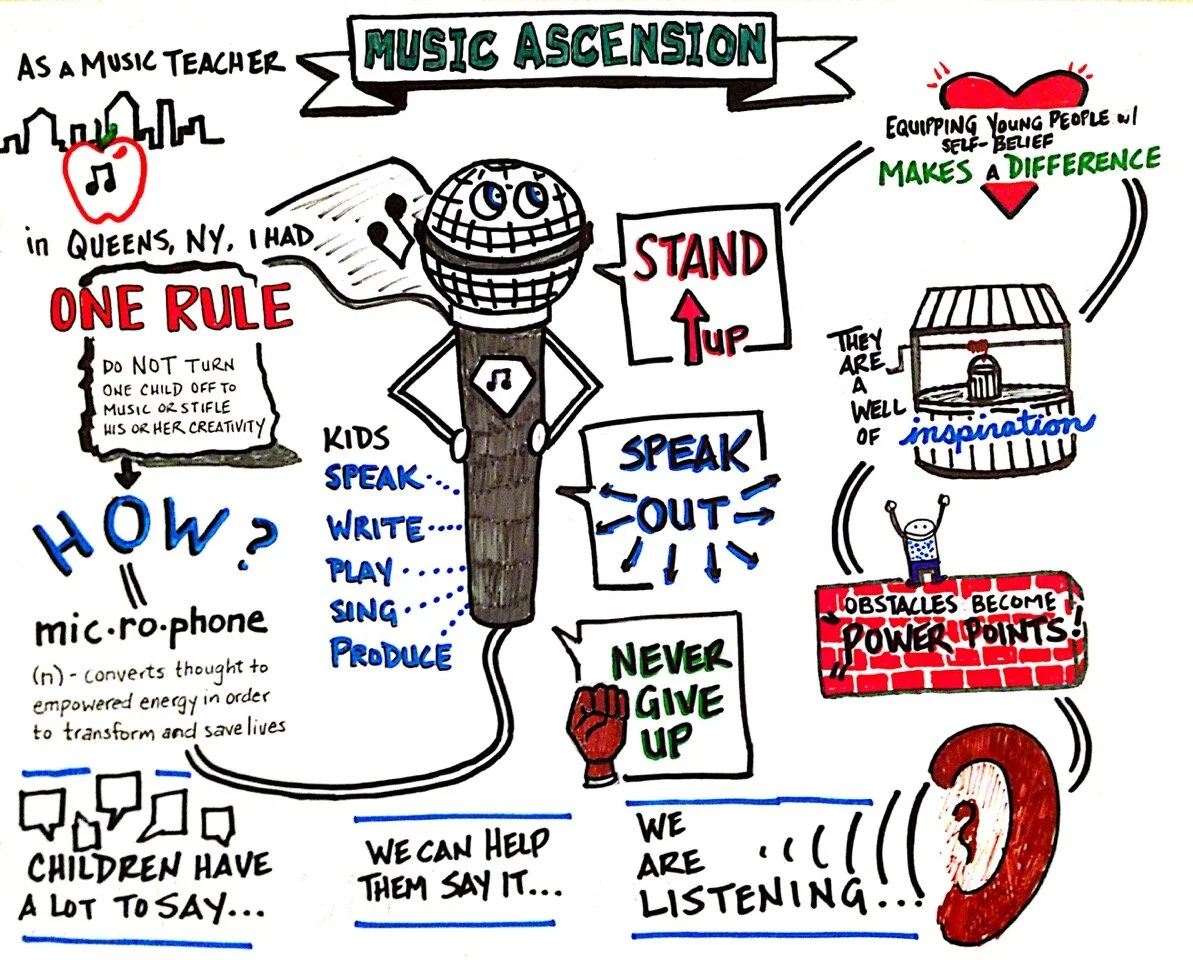 MUSIC ASCENSION
AS A MUSIC TEACHER
in QUEENS, NY, I HAD
ONE RULE
DO NOT TURN
ONE CHILD OFF TO
MUSIC OR STIFLE
HIS OR HER CREATIVITY
HOW?
mic·ro·phone
(n) - converts thought to
empowered energy in order
to transform and save lives
KIDS
SPEAK
WRITE
PLAY
SING
PRODUCE
STAND
UP
SPEAK
OUT
NEVER
GIVE
UP
EQUIPPING YOUNG PEOPLE w/
SELF-BELIEF
MAKES A DIFFERENCE
THEY
ARE
A
WELL
OF
inspiration
OBSTACLES BECOME
"POWER POINTS!"
CHILDREN HAVE
A LOT TO SAY...
WE CAN HELP
THEM SAY IT...
WE
ARE
LISTENING...